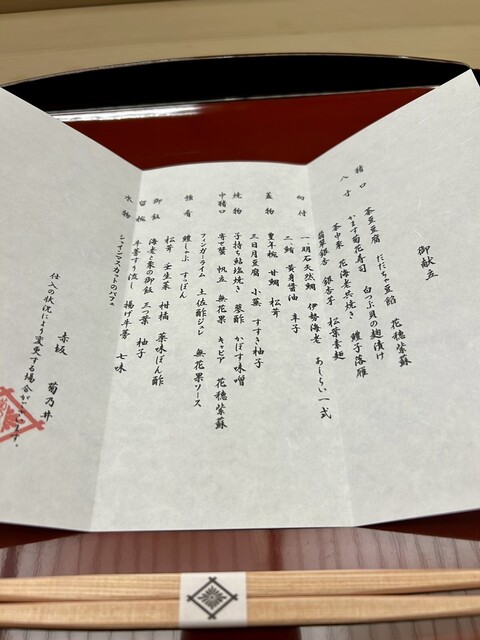 御献立
猪口　茶豆豆腐　だだちゃ豆餡　花穂紫蘇
八寸　かます菊花寿司　白つぶ貝の麹漬け
茶巾栗　花海老共焼き　鱧子落雁
翡翠銀杏　銀杏芋　松葉素麺
向付　一、明石天然鯛　伊勢海老　あしらい一式
二、鮪　黄身醤油　辛子
蓋物　豊年椀　甘鯛　松茸
三日月豆腐　小蕪　すすき柚子
焼物　子持ち鮎塩焼き　蓼酢　かぼす味噌
中猪口　寄せ蟹　帆立　無花果　キャビア　花穂紫蘇
フィンガーライム　土佐酢ジュレ　無花果ソース
強肴　鱧しゃぶ　すっぽん
松茸　壬生菜　柑橘　薬味ぽん酢
御飯　海老と栗の御飯　三つ葉　柚子
留椀　牛蒡すり流し　揚げ牛蒡　七味
水物　シャインマスカットのパフェ
赤坂　菊乃井
仕入の状況により変更する場合がございます。